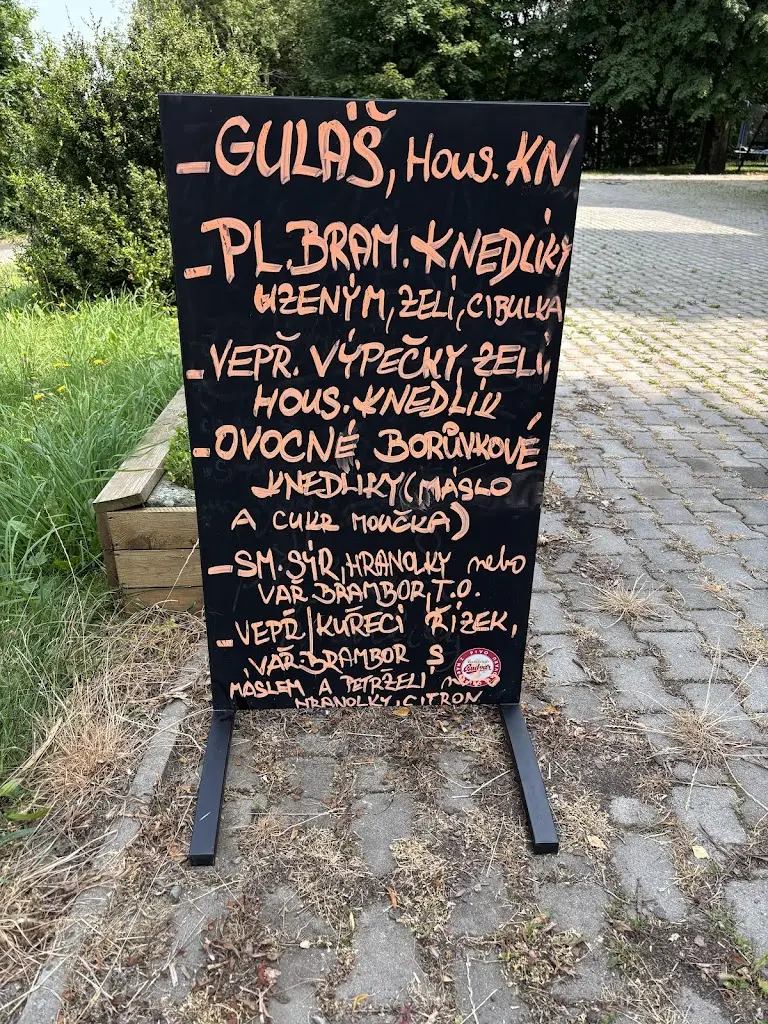 - GULÁŠ, HOUS. KN
- PL. BRAM. KNEDLÍKY
UZENÝM, ZELÍ, CIBULKA
- VEPŘ. VÝPEČKY, ZELÍ,
HOUS. KNEDLÍK
- OVOCNÉ BORŮVKOVÉ
KNEDLÍKY (MÁSLO
A CUKR MOUČKA)
- SM. SÝR, HRANOLKY nebo
VAŘ. BRAMBOR, T.O.
- VEPŘ/KUŘECÍ ŘÍZEK,
VAŘ. BRAMBOR S
MÁSLEM A PETRŽELÍ
HRANOLKY, CITRON
Budvar